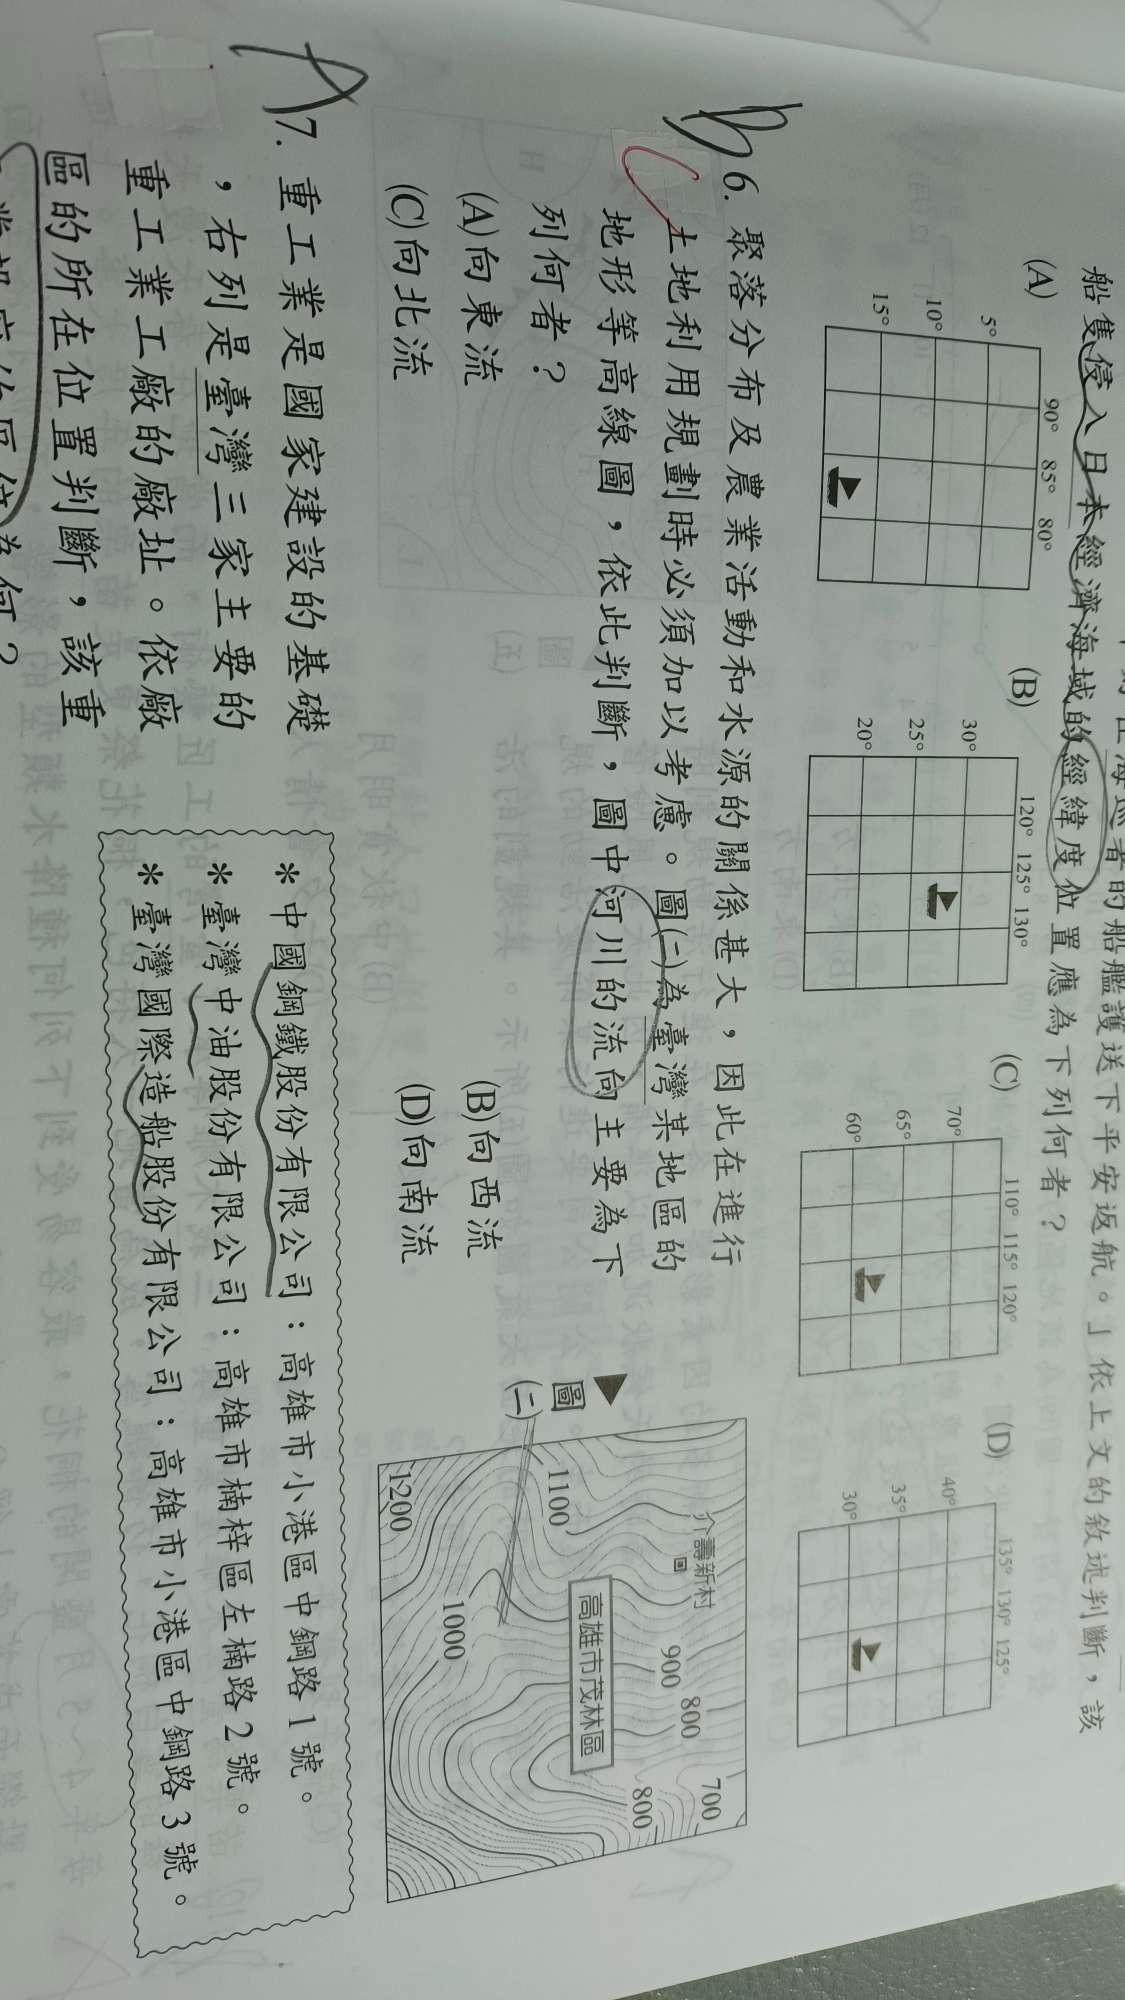 船隻侵入日本經濟海域的經緯度位置應為下列何者？
(A)
90° 85° 80°
5°
10°
15°
(B)
120° 125° 130°
30°
25°
20°
(C)
110° 115° 120°
70°
65°
60°
(D)
135° 130° 125°
40°
35°
30°
B
6. 聚落分布及農業活動和水源的關係甚大，因此在進行
土地利用規劃時必須加以考慮。圖(二)為臺灣某地區的
地形等高線圖，依此判斷，圖中河川的流向主要為下
列何者？
(A)向東流
(B)向西流
(C)向北流
(D)向南流
圖
(二)
介壽新村
700
800
900
800
高雄市茂林區
1100
1000
1200
A
7. 重工業是國家建設的基礎
，右列是臺灣三家主要的
重工業工廠的廠址。依廠
區的所在位置判斷，該重
＊中國鋼鐵股份有限公司：高雄市小港區中鋼路1號。
＊臺灣中油股份有限公司：高雄市楠梓區左楠路2號。
＊臺灣國際造船股份有限公司：高雄市小港區中鋼路3號。